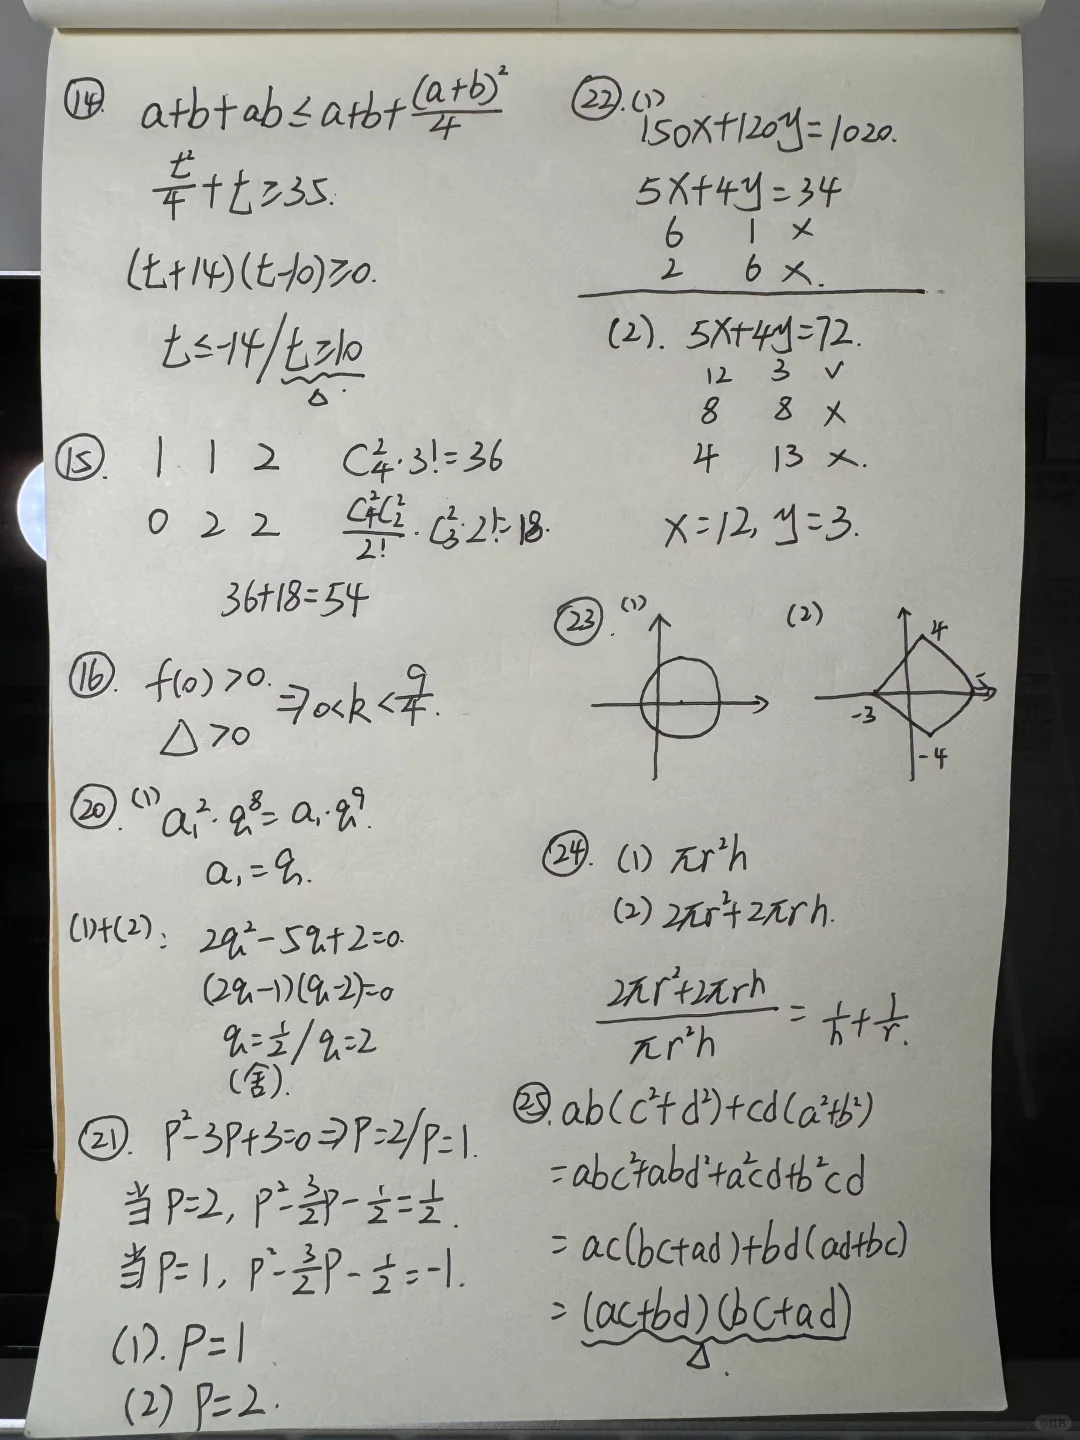 ⑭. a+b+ab≤a+b+(a+b)²/4
t²/4+t≥35.
(t+14)(t-10)≥0.
t≤-14/t≥10
△.
⑮. 1 1 2 C₄²·3!=36
0 2 2 C₄²C₂²/2!·C₃²·2!=18.
36+18=54
⑯. f(0)>0. ⇒0<k<9/4.
△>0
⑳. (1) a₁²·q⁸=a₁·q⁹.
a₁=q.
(1)+(2): 2q²-5q+2=0.
(2q-1)(q-2)=0
q=1/2/q=2
(舍).
㉑. P²-3P+3=0⇒P=2/P=1.
当P=2, P²-3/2P-1/2=1/2.
当P=1, P²-3/2P-1/2=-1.
(1). P=1
(2) P=2.
㉒. (1)
150x+120y=1020.
5x+4y=34
6 1 ×
2 6 ×.
(2). 5x+4y=72.
12 3 ✓
8 8 ×
4 13 ×.
x=12, y=3.
㉓. (1) (2)
4
-3 5
-4
㉔. (1) πr²h
(2) 2πr²+2πrh.
2πr²+2πrh/πr²h = 1/h+1/r.
㉕. ab(c²+d²)+cd(a²+b²)
=abc²+abd²+a²cd+b²cd
=ac(bc+ad)+bd(ad+bc)
=(ac+bd)(bc+ad)
△.
小红书